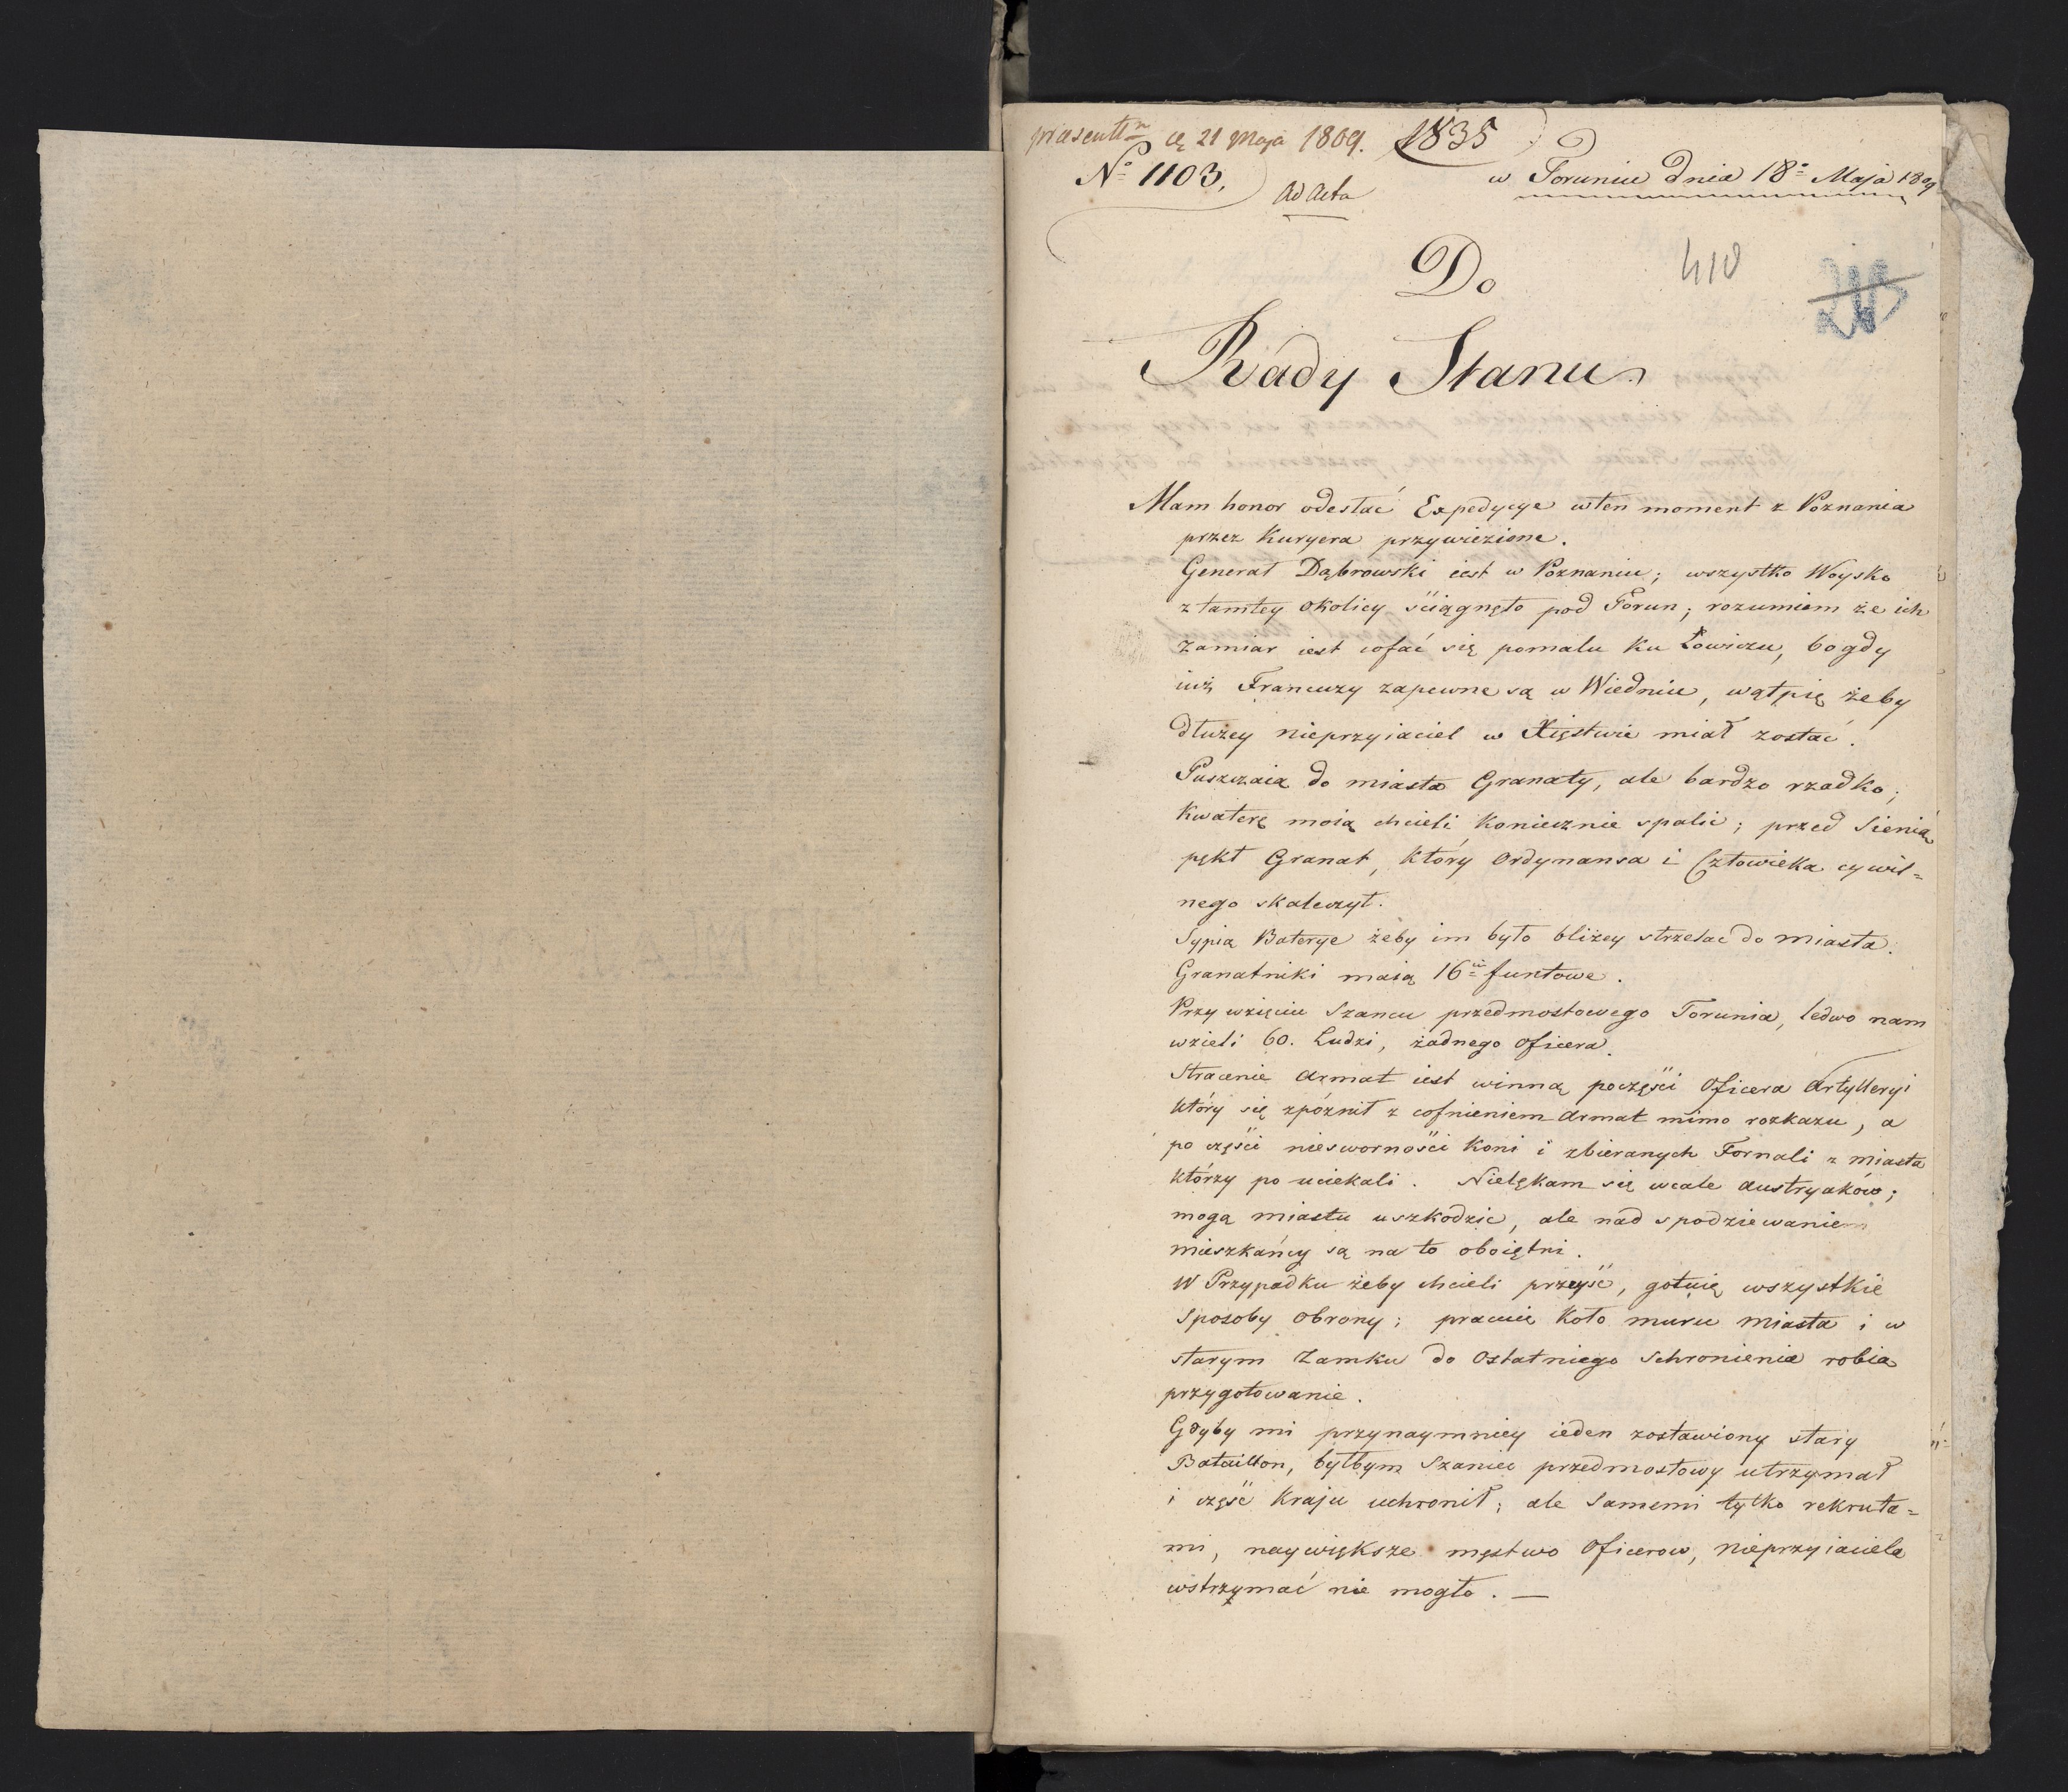 d. 21 Maja 1809. 1835
No 1103.
ad acta
w Toruniu dnia 18o Maja 1809
410
Do
Rady Stanu
Mam honor odesłać Expedycye wten moment z Poznania
przez Kuryera przywiezione.
Generał Dąbrowski iest w Poznaniu; wszystko Woysko
z tamtey okolicy ściągnęło pod Torun; rozumiem że ich
zamiar iest cofać się pomału ku Łowiczu, bo gdy
iuż Francuzy zapewne są w Wiedniu, wątpię żeby
dłużey nieprzyiaciel w Xięstwie miał zostać.
Puszczaią do miasta Granaty, ale bardzo rzadko;
Kwaterę moią chcieli koniecznie spalić; przed Sienią
pękł Granat, który Ordynansa i Człowieka cywil=
nego skaleczył.
Sypią Baterye żeby im było bliżey strzelac do miasta.
Granatniki maią 16u funtowe.
Przy wzięciu Szancu przedmostowego Torunia, ledwo nam
wzieli 60. Ludzi, żadnego Oficera.
Stracenie Armat iest winną poczęści Oficera Artylleryi
który się zpóznił z cofnieniem Armat mimo rozkazu, a
po części niesworności Koni i zbieranych Fornali z miasta
którzy po uciekali. Nielękam się wcale Austryaków;
mogą miastu uszkodzic, ale nad spodziewaniem
mieszkańcy są na to oboiętni.
W Przypadku żeby chcieli przeyść, gotuię wszystkie
Sposoby Obrony; pracuię koło muru miasta i w
starym Zamku do Ostatniego Schronienia robia
przygotowanie.
Gdyby mi przynaymniey ieden zostawiony stary
Bataillon, byłbym Szaniec przedmostowy utrzymał
i część Kraju uchronił; ale Samemi tylko rekruta=
mi, naywiększe męstwo Oficerow, nieprzyiaciela
wstrzymać nie mogło. —